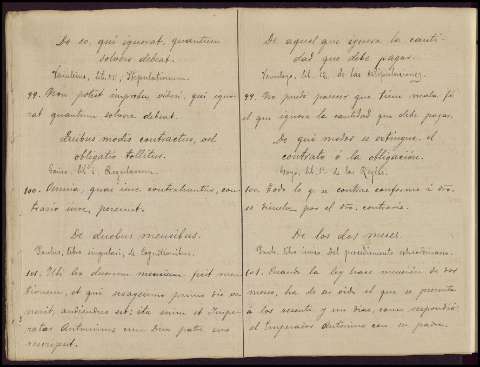 De eo, qui ignorat, quantum
solvere debeat.
lib. Disputationum.
99. Non potest improbus videri, qui igno-
rat quantum solvere debeat.
Quibus modis contractus, vel
obligatio tollitur.
Gaius, lib. 1. Regularum.
100. Omnia, quae iure contrahuntur, con-
trario iure, pereunt.
De duobus mensibus.
Paulus, libro singulari, de Cognitionibus.
101. Ubi lex duorum mensium fecit men-
tionem, et qui sexagesimo primo die ve-
nerit, audiendus est: ita enim et Impe-
rator Antoninus cum Divo patre suo
rescripsit.
De aquel que ignora la canti-
dad que debe pagar.
lib. de las Disputaciones.
99. No puede parecer que tiene mala fé
el que ignora la cantidad que debe pagar.
De qué modos se extingue el
contrato ó la obligación.
Gayo, lib. 1º de las Reglas.
100. Todo lo q. se contrae conforme á dro.
se disuelve por el dro. contrario.
De los dos meses.
Paulo, libro único del procedimiento
101. Cuando la ley hace mención de dos
meses, ha de ser oido el que se presenta
á los sesenta y un dias, como respondió
el Emperador Antonino con su padre.